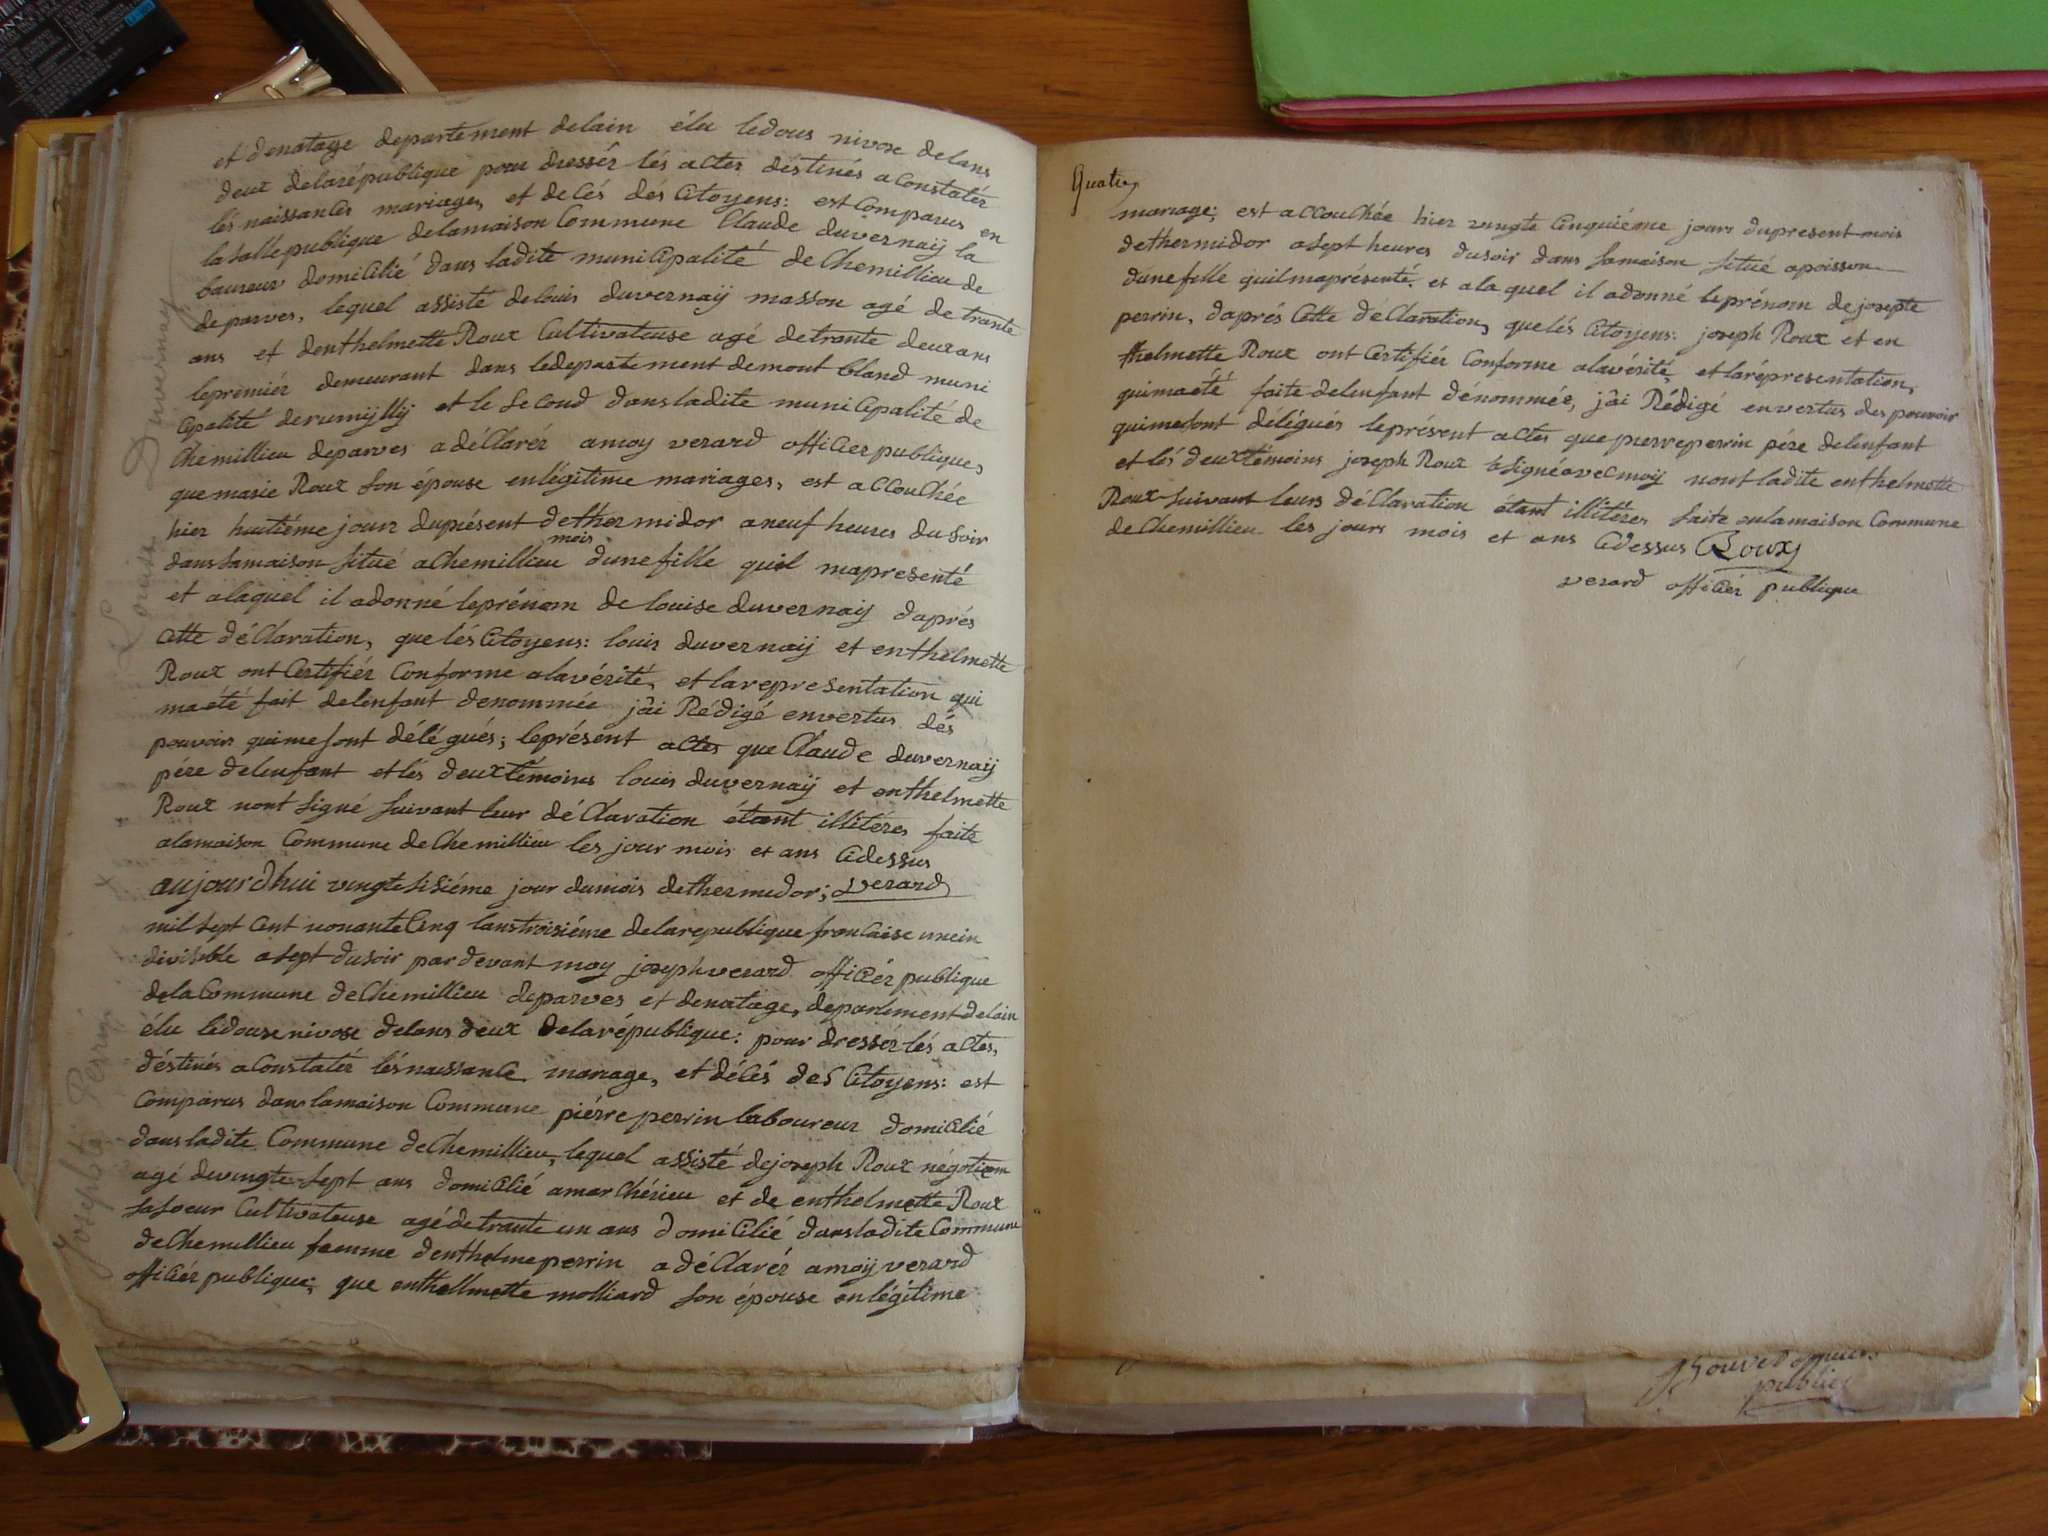 et denatage departement delain élu ledous nivose delans
deux delarépublique pour dressér lés actes déstinés aconstatér
lés naissances mariages, et decés dés Citoyens: est Comparus en
lasalle publique delamaison Commune Claude duvernaÿ la
boureur domicilié dans ladite municipalité de Chemillieu de
de parves, lequel assisté delouis duvernaÿ masson agé de trante
ans et denthelmette Roux Cultivateuse agé detrante deux ans
lepremiér demeurant dans ledepartement demont bland muni
Cipalité derumijlly et le second dansladite municipalité de
Chemillieu deparves adéClarér amoy verard officier publiques
que marie Roux son épouse enlégitime mariages, est accouchée
hier huitiéme jours duprésent dethermidor aneuf heures du soir
mois
danssamaison situé achemillieu dunefille quil mapresenté
et alaquel il adonné leprénom de louise duvernaij daprés
cette déClaration, que lés Citoyens: louis duvernaij et enthelmette
Roux ont Certifiér Conforme alavérité, et larepresentation qui
maété fait delenfant denommée jâi Rédigé envertus dés
pouvoirs quimesont délégués; leprésent actes que Claude duvernaij
pére delenfant et lés deux témoins louis duvernaij et enthelmette
Roux nont signé suivant leur déClaration étant illitéres faite
alamaison Commune de Chemillieu les jour mois et ans Cidessus
aujourdhui vingtesisiéme jour dumois dethermidor; verard
mil sept Cent nonante Cinq lanstroisiéme delarepublique francaise unein
divisible asept dusoir pardevant moy joseph verard officiér publique
delaCommune deChemillieu deparves et denatage, departement delain
élu ledouse nivose delans deux delarépublique: pour dressér lés actes,
déstinés aConstatér lésnaissance mariage, et décés des Citoyens: est
Comparus dans lamaison Commune piérre perrin laboureur domicilié
dans ladite Commune deChemillieu, lequel assisté dejoseph Roux négotiam
agé devingte sept ans domicilié amarchérieu et de enthelmette Roux
sasoeur Cultivateuse agé detrante un ans domicilié dansladite Commune
deChemillieu femme denthelme perrin adéClarér amoij verard
officiér publique; que enthellmette molliard son épouse enlégitime
Louise Duvernay
Josephte Perrin
Quatre
mariage; est accouchée hier vingte Cinquiéme jours dupresent mois
dethermidor asept heures dusoir dans samaison situé apoisson
dune fille quilmaprésenté et ala quel il adonné leprénom dejosepte
perrin, daprés Cette déClaration, quelés Citoyens: joseph Roux et en
thelmette Roux ont Certifiér Conforme alavérité, et laréprésentation,
quimaété faite delenfant dénommée, jâi Rédigé envertus des pouvoir
quimesont délégués leprésent actes que pierre perrin pére delenfant
et lés deux témoins joseph Roux asigné avec moij nont ladite enthelmette
Roux suivant leurs déClaration étant illitéres faite enlamaison Commune
de Chemillieu les jours mois et ans Cidessus Roux
verard officiér publique
publice